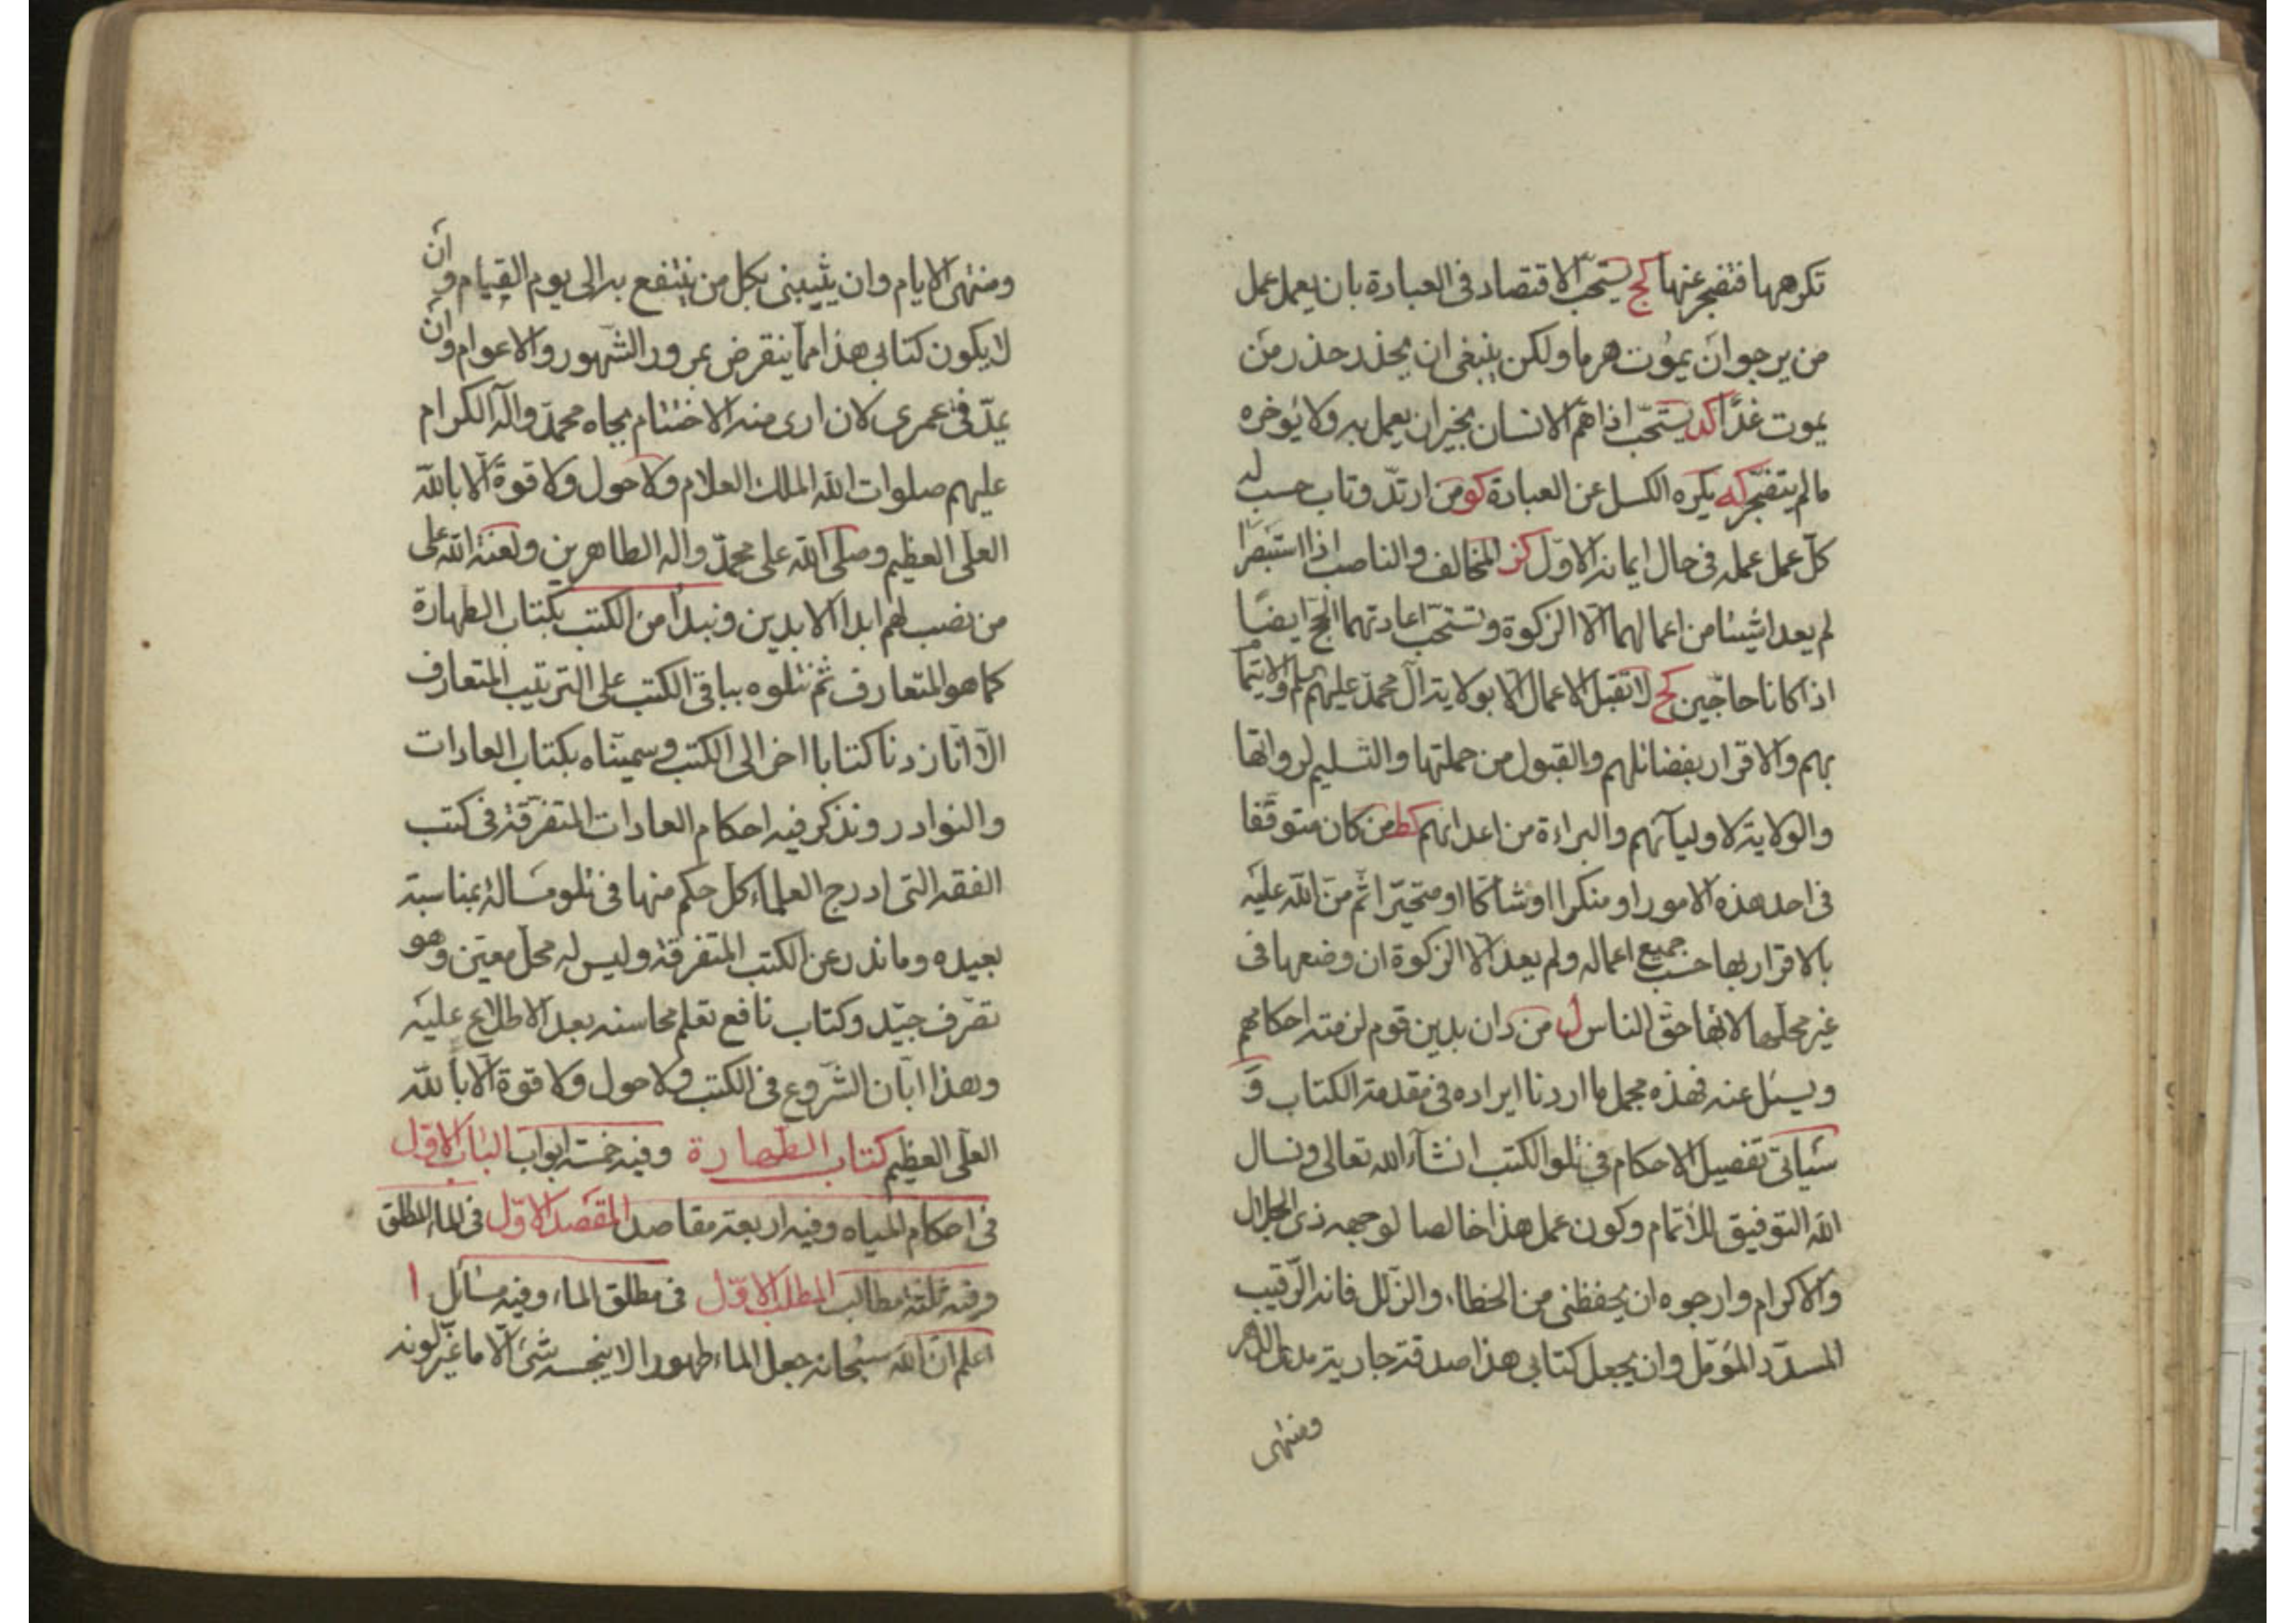 تكرهها فتضجر عنها كج يستحبّ الاقتصاد فى العبادة بان يعمل عمل
من يرجو ان يموت هرما ولكن ينبغى ان يحذر حذر من
يموت غدًا كد يستحبّ اذا همّ الانسان بخير ان يعمل به ولا يؤخره
مالم يتضجّر كه يكره الكسل عن العبادة كو من ارتدّ وتاب حسب له
كلّ عمل عمله فى حال ايمانه الاوّل كز المخالف والناصب اذا استبصرا
لم يعدا شيئا من اعمالهما الّا الزكوة وتستحبّ اعادتهما الحجّ ايضًا
اذا كانا حاجّين كح لا تقبل الاعمال الّا بولاية ال محمّد عليهم السلم والايتمام
بهم والاقرار بفضائلهم والقبول من حملتها والتسليم لرواتها
والولاية لاوليآئهم والبراءة من اعدائهم كط من كان متوقّفا
فى احد هذه الامور او منكرا او شاكّا او متحيّرا ثم منّ الله عليه
بالاقرار بها حسب جميع اعماله ولم يعد الّا الزكوة ان وضعها فى
غير محلّها لانّها حقّ الناس ل من دان بدين قوم لزمته احكامهم
ويسئل عنه فهذه مجمل ما اردنا ايراده فى مقدمة الكتاب و
سياتى تفصيل الاحكام فى تلو الكتب انشآء الله تعالى ونسال
الله التوفيق للاتمام وكون عمل هذا خالصا لوجهه ذى الجلال
والاكرام وارجوه ان يحفظنى من الخطاء والزلل فانه الرّقيب
المسدّد المؤمّل وان يجعل كتابى هذا صدقة جارية مدى الدهر
ومنتهى
ومنتهى الايام وان يثيبنى بكل من ينتفع به الى يوم القيام وان
لا يكون كتابى هذا ممّا ينقرض بمرور الشّهور والاعوام وان
يمدّ فى عمرى لان ارى منه الاختتام بجاه محمّد واله الكرام
عليهم صلوات الله الملك العلام ولا حول ولا قوة الّا بالله
العلى العظيم وصلى الله على محمّد واله الطاهرين ولعنة الله على
من نصب لهم ابد الابدين ونبدا من الكتب بكتاب الطهارة
كما هو المتعارف ثم نتلوه بباقى الكتب على الترتيب المتعارف
الّا انّا زدنا كتابا اخر الى الكتب وسمّيناه بكتاب العادات
والنوادر ونذكر فيه احكام العادات المتفرّقة فى كتب
الفقه التى ادرج العلماء كل حكم منها فى تلو مسالة بمناسبة
بعيده وما ندر عن الكتب المتفرقة وليس له محلّ معيّن وهو
تصرّف جيّد وكتاب نافع تعلم محاسنه بعد الاطلاع عليه
وهذا ابّان الشروع فى الكتب ولا حول ولا قوة الّا بالله
العلى العظيم كتاب الطهارة وفيه خمسة ابواب الباب الاوّل
فى احكام المياه وفيه اربعة مقاصد المقصد الاوّل فى الماء المطلق
وفيه ثلثة مطالب المطلب الاوّل فى مطلق الماء وفيه مسائل ا
اعلم انّ الله سبحانه جعل الماء طهورا لا ينجسه شىء الّا ما غيّر لونه